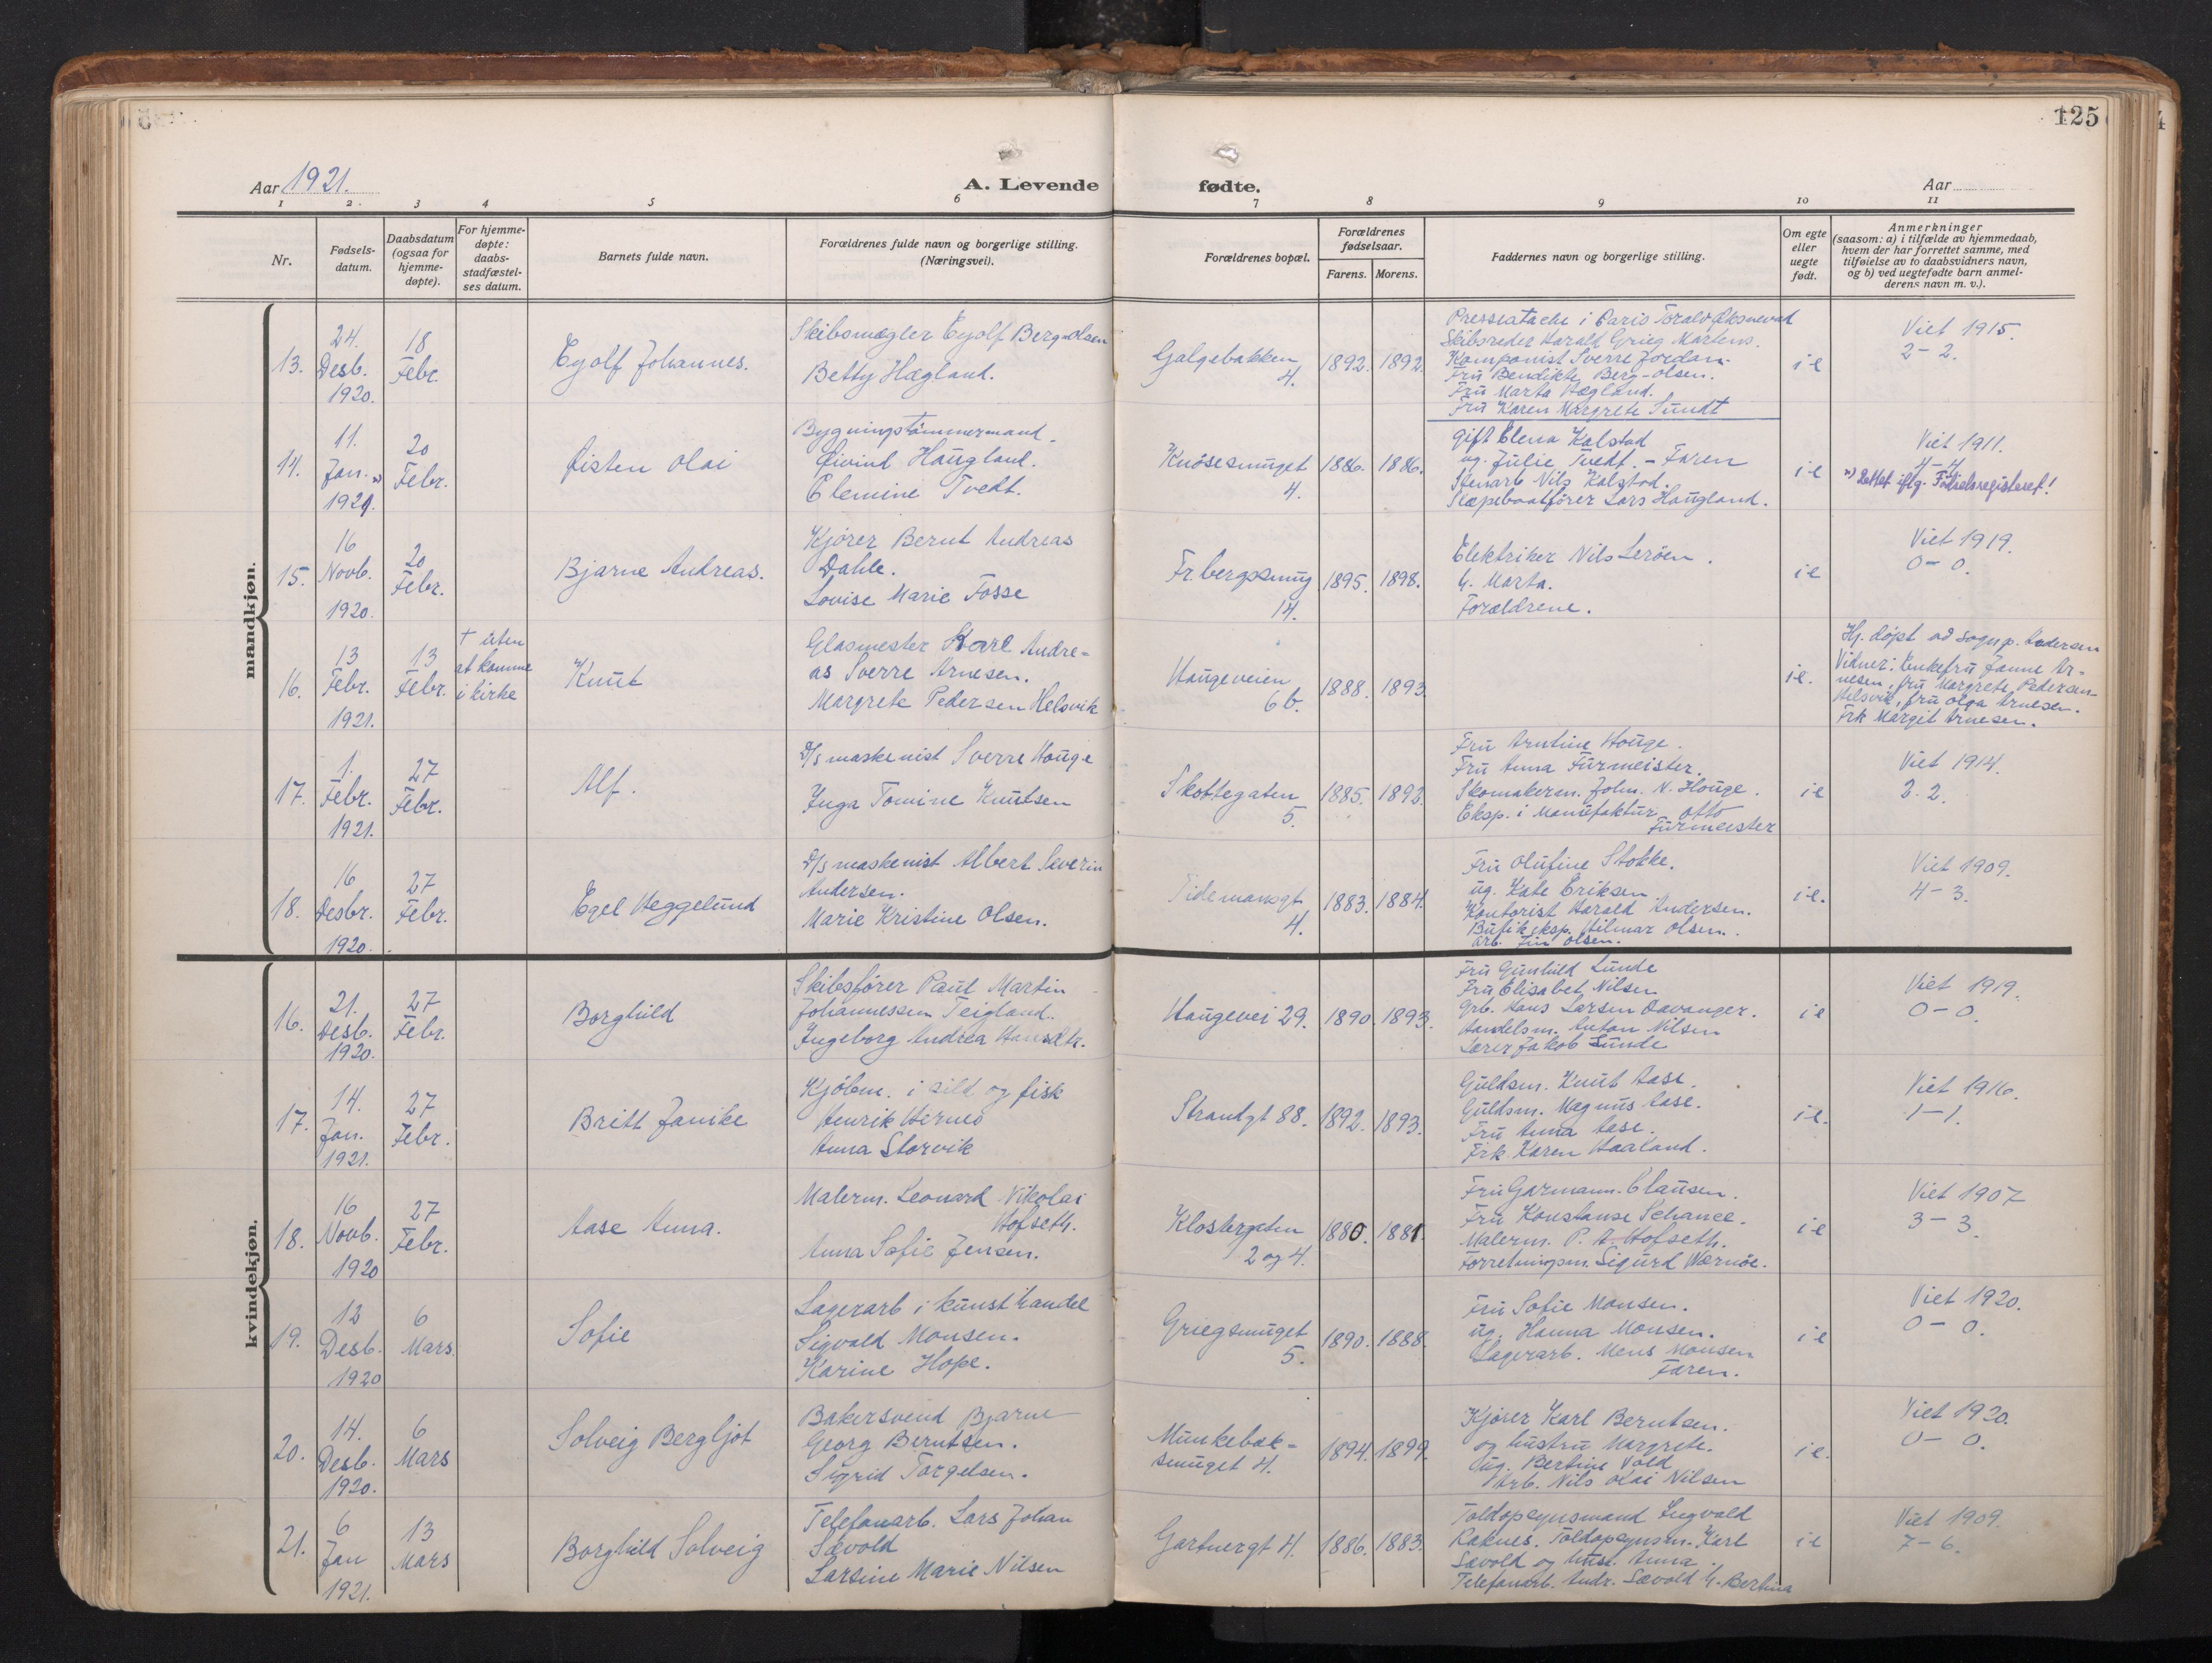 125
Aar 1921.
A. Levende fødte.
Aar
1 2. 3 4 5 6 7 8 9 10 11
Nr.
Fødsels-
datum.
Daabsdatum
(ogsaa for
hjemme-
døpte).
For hjemme-
døpte:
daabs-
stadfæstel-
ses datum.
Barnets fulde navn.
Forældrenes fulde navn og borgerlige stilling.
(Næringsvei).
Forældrenes bopæl.
Forældrenes
fødselsaar.
Farens. Morens.
Faddernes navn og borgerlige stilling.
Om egte
eller
uegte
født.
Anmerkninger
(saasom: a) i tilfælde av hjemmedaab,
hvem der har forrettet samme, med
tilføielse av to daabsvidners navn,
og b) ved uegtefødte barn anmel-
derens navn m. v.).
mandkjøn.
13.
24.
Desb.
1920.
18
Febr.
Eyolf Johannes.
Skibsmægler Eyolf Berg-Olsen
Betty Hægland.
Galgebakken
4.
1892. 1892.
Presseatache i Paris Toralv Øksnevad
Skibsreder Harald Grieg Martens.
Komponist Sverre Jordan.
Fru Bendikte Berg-Olsen.
Fru Marta Hægland.
Fru Karen Margrete Sundt
ie
Viet 1915.
2-2.
14.
11.
Jan.
1921.
20
Febr.
Øisten Olai
Bygningstømmermand.
Øivind Haugland.
Elemine Tvedt.
Knøsesmuget
4.
1886. 1886.
gift Elena Kalstad
ug. Julie Tvedt. - Faren
Stenarb Nils Kalstad.
Slæpebaatfører Lars Haugland.
ie
Viet 1911.
4-4
Rettet iflg. Fødselsregisteret!
15.
16
Novb.
1920.
20
Febr.
Bjarne Andreas.
Kjører Bernt Andreas
Dahle.
Lovise Marie Fosse
Fr. bergssmug
14.
1895. 1898.
Elektriker Nils Lerøen.
h. Marta.
Forældrene.
ie
Viet 1919.
0-0.
16.
13
Febr.
1921.
13
Febr.
† uten
at komme
i kirke
Knut
Glasmester Karl Andre-
as Sverre Arnesen.
Margrete Pedersen Helsvik
Haugeveien
6b.
1888. 1893.
ie.
Hj. døpt ad sognp. Andersen
Vidner: Enkefru Janne Ar-
nesen, fru Margrete Pedersen-
Helsvik, fru Olga Arnesen.
Frk Margit Arnesen.
17.
1.
Febr.
1921.
27
Febr.
Alf.
D/s maskenist Sverre Houge
Inga Tomine Knutsen
Skottegaten
5.
1885. 1892.
Fru Arntine Houge.
Fru Anna Furmeister.
Skomakerm. Johs. N. Houge.
Eksp. i Manufaktur Otto
Furmeister
ie
Viet 1914.
2.2.
18.
16
Desbr.
1920.
27
Febr.
Egel Heggelund
D/s maskenist Albert Severin
Andersen.
Marie Kristine Olsen.
Tidemansgt
4.
1883. 1884.
Fru Olufine Stokke.
ug. Kate Eriksen
Kontorist Harald Andersen.
Butikeksp. Hilmar Olsen.
Olsen.
ie.
Viet 1909.
4-3.
kvindekjøn.
16.
21.
Desb.
1920.
27
Febr.
Borghild
Skibsfører Paul Martin
Johannessen Teigland.
Ingeborg Andrea Hansdtr.
Haugevei 29.
1890. 1893.
Fru Gunhild Lunde
Fru Elisabet Nilsen
Grb. Hans Larsen Davanger.
Handelsm. Anton Nilsen
Lærer Jakob Lunde
ie
Viet 1919.
0-0.
17.
14.
Jan.
1921.
27
Febr.
Britt Janike
Kjøbm. i sild og fisk
Henrik Hernes
Anna Storvik
Strandgt 88.
1892. 1893.
Guldsm. Knut Aase.
Guldsm. Magnus Aase.
Fru Anna Aase.
Frk. Karen Haaland.
ie.
Viet 1916.
1-1.
18.
16
Novb.
1920
27
Febr.
Aase Anna.
Malerm. Leonard Nikolai
Hofseth.
Anna Sofie Jensen.
Klostergaten
2 og 4.
1880. 1881.
Fru Garmann-Clausen.
Fru Konstanse Schance.
Malerm. P. A. Hofseth.
Forretningsm. Sigurd Wærnøe.
ie
Viet 1907
3-3.
19.
12
Desb.
1920
6
Mars.
Sofie
Lagerarb i kunsthandel
Sigvald Monsen.
Karine Hope.
Griegsmuget
5.
1890. 1888.
Fru Sofie Monsen.
ug. Hanna Monsen.
Lagerarb. Mens Monsen
Faren.
ie
Viet 1920.
0-0.
20.
14.
Desb.
1920.
6
Mars
Solveig Bergljot
Bakersvend Bjarne
Georg Berntsen.
Sigrid Torgelsen.
Munkebæk-
smuget 4.
1894. 1899.
Kjører Karl Berntsen.
og hustru Margrete.
ug. Bertine Vold
Arb. Nils Olai Nilsen
ie.
Viet 1920.
0-0.
21.
6
Jan
1921.
13
Mars
Borghild Solveig
Telefonarb. Lars Johan
Sævold
Larsine Marie Nilsen
Gartnergt 4.
1886. 1883.
Toldopsynsmand Ingvald
Raknes. Toldopsynsm. Karl
Sævold og hust. Anna.
Telefonarb. Andr. Sævold h. Bertina
ie
Viet 1909.
7-6.